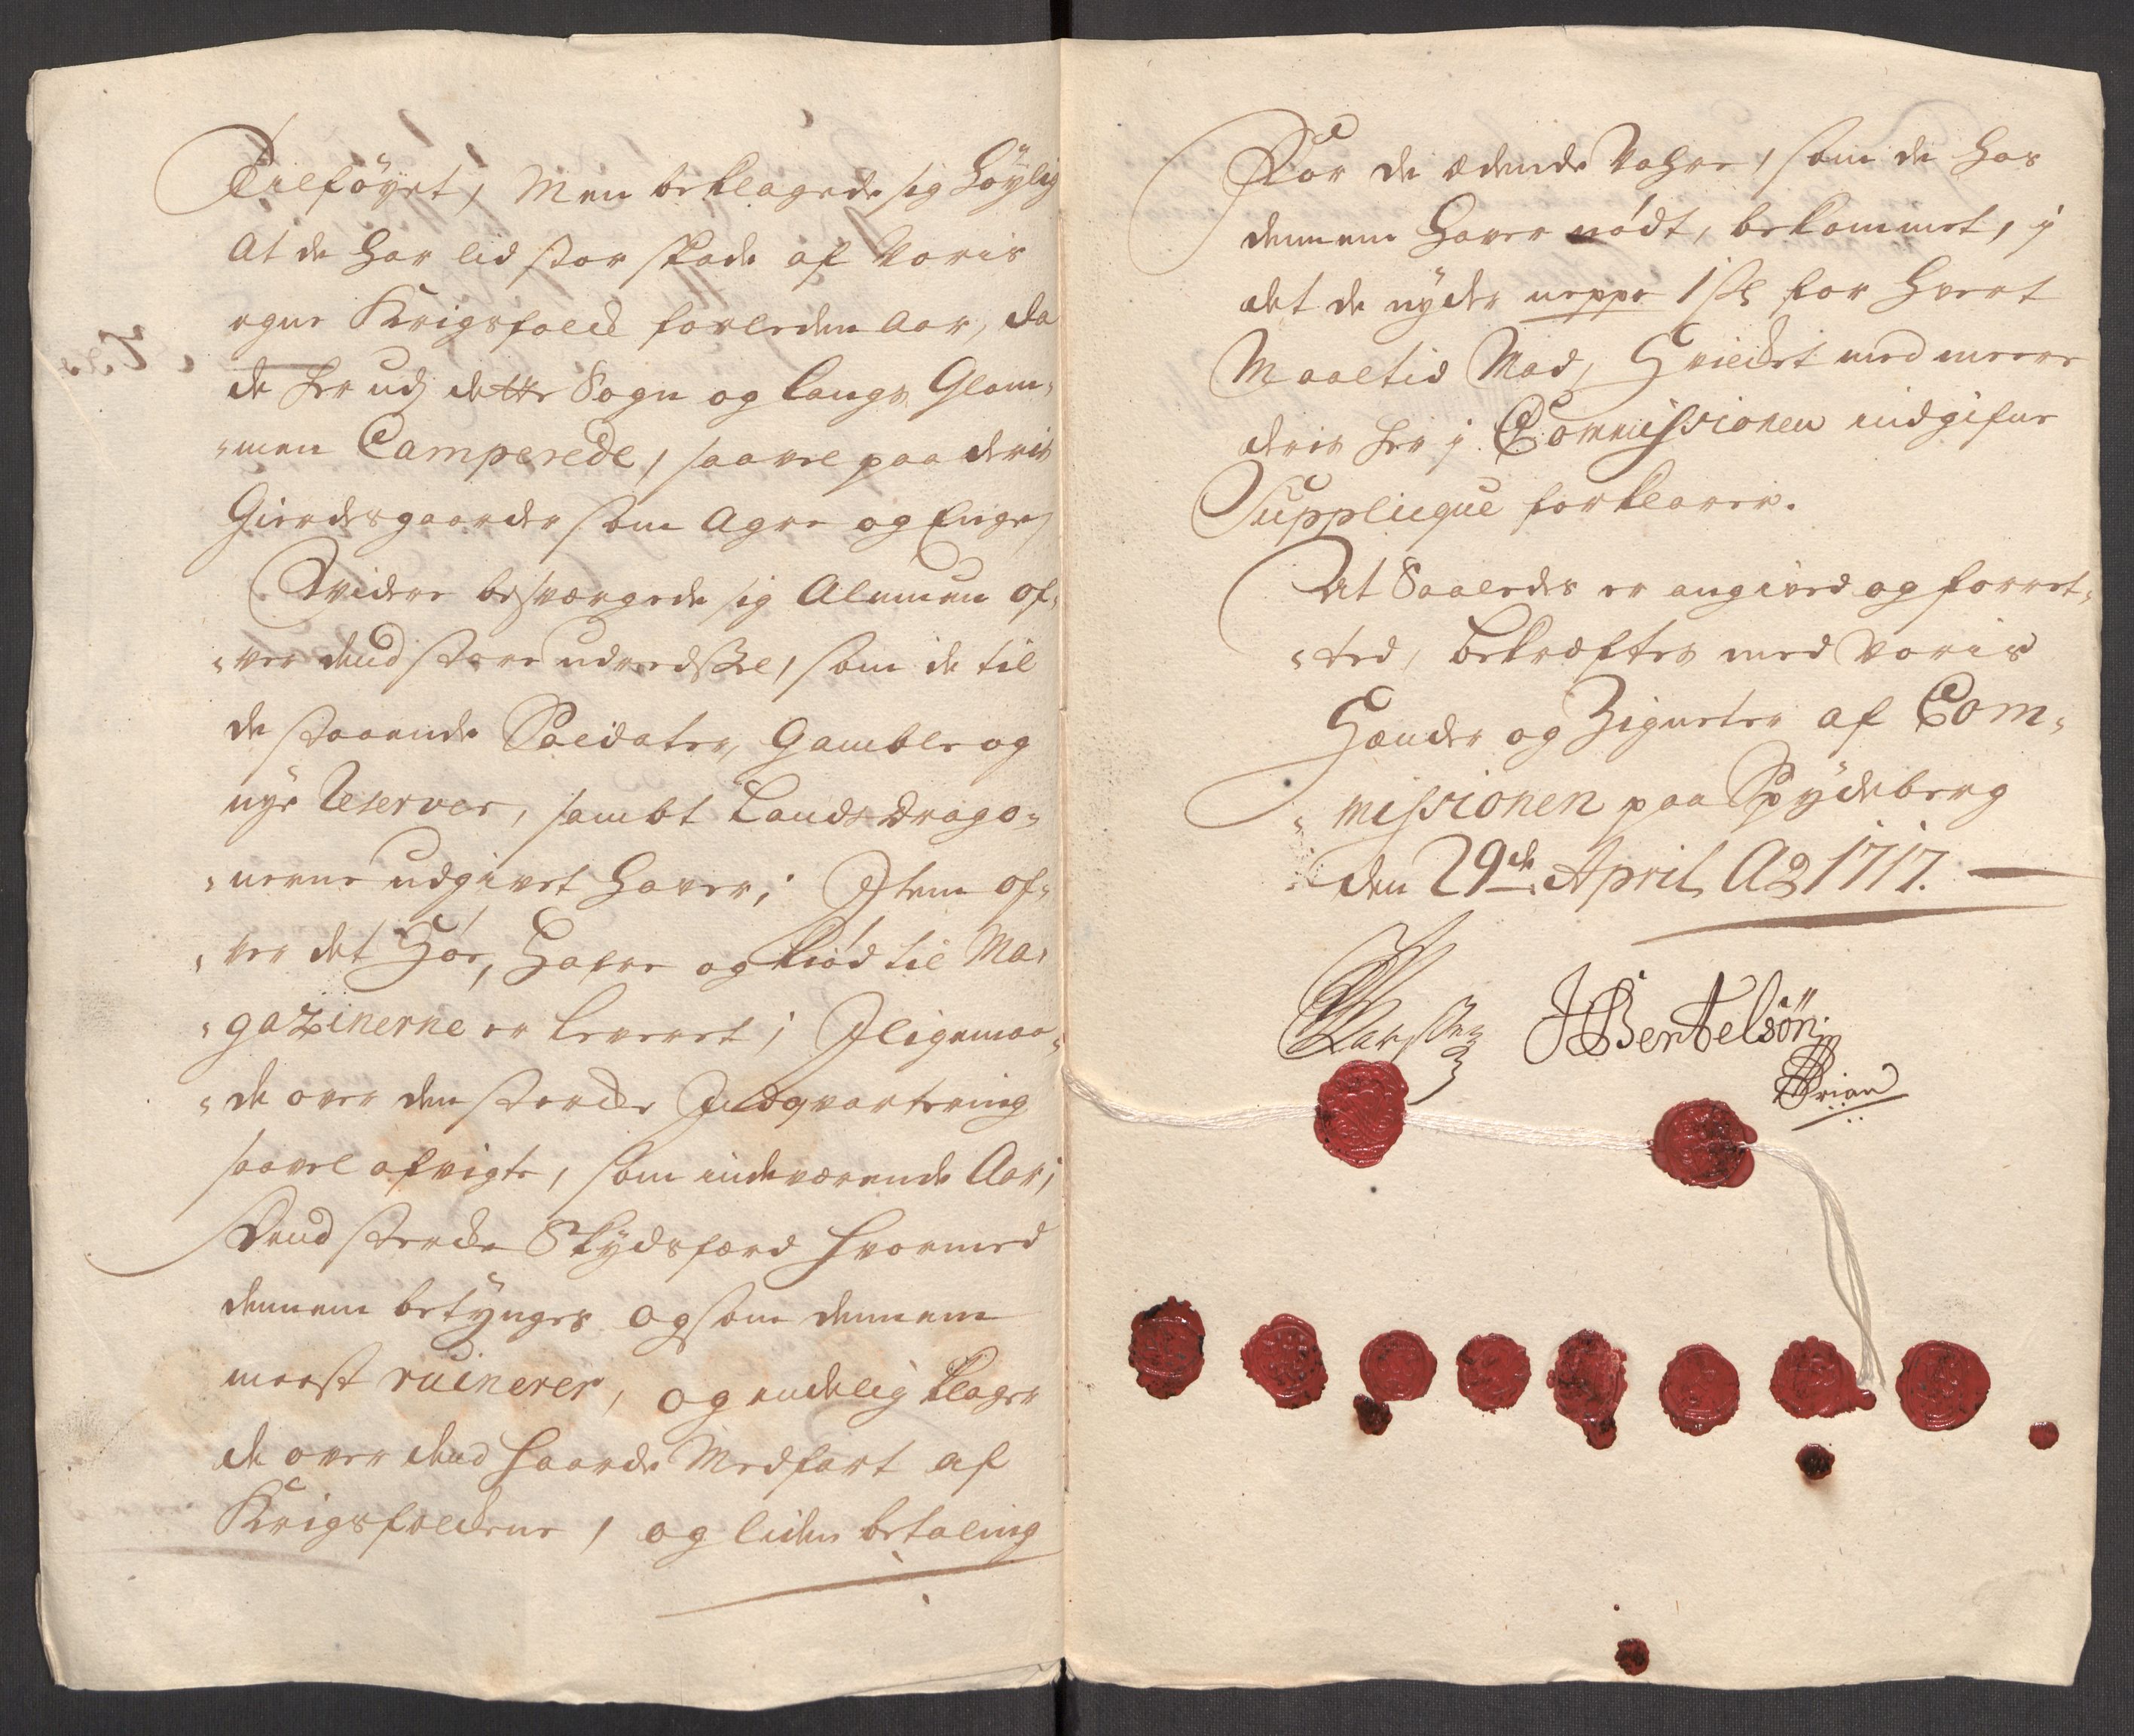 Tilføyet, Men beklagede sig høylig
At de har lid stor skade af Voris
egne Krigsfolck forleden Aar, da
de her udj dette Sogn og langs Glom¬
men Camperede, saavel paa deris
Gierdesgaarder som Agre og Enge,
Widere besværgede sig Almuen of¬
ver dend store udreedsel, som de til
de staaende Soldater, Gamble og
nye Reserver, sambt Lands Drago¬
nerne udgivet haver; Item of¬
ver det Høe, Hafre og Kiød til Ma¬
gazinerne er leveret; Jligemaa¬
de over den stercke Indqvartering
saavel afvigte, som indeværende Aar;
Dend stercke Skydsfærd hvormed
dennem betynges og som dennem
meest ruinerer, og endelig klager
de over dend haarde Medfart af
Krigsfolckene, og liden betaling
For de ædende Vahre, som de hos
dennem haver nødt, bekommet, j
det de nyder neppe 1 s for hvert
Maaltid Mad, Hvilcket med meere
deris her j Commissionen indgifne
Supplicque forklarer.
At Saaledes er angived og forret¬
ted, bekræftes med Voris
Hænder og Zigneter af Com¬
missionen paa Spydeberg
den 29de April Ao 1717.
JBentelsön